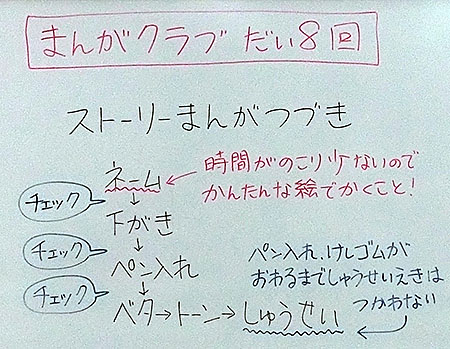 まんがクラブ だい8回
ストーリーまんがつづき
ネーム ← 時間がのこり少ないので
かんたんな絵でかくこと!
チェック
↓
下がき
チェック
↓
ペン入れ
チェック
↓
ベタ→トーン→しゅうせい
ペン入れ、けしゴムが
おわるまでしゅうせいえきは
つかわない